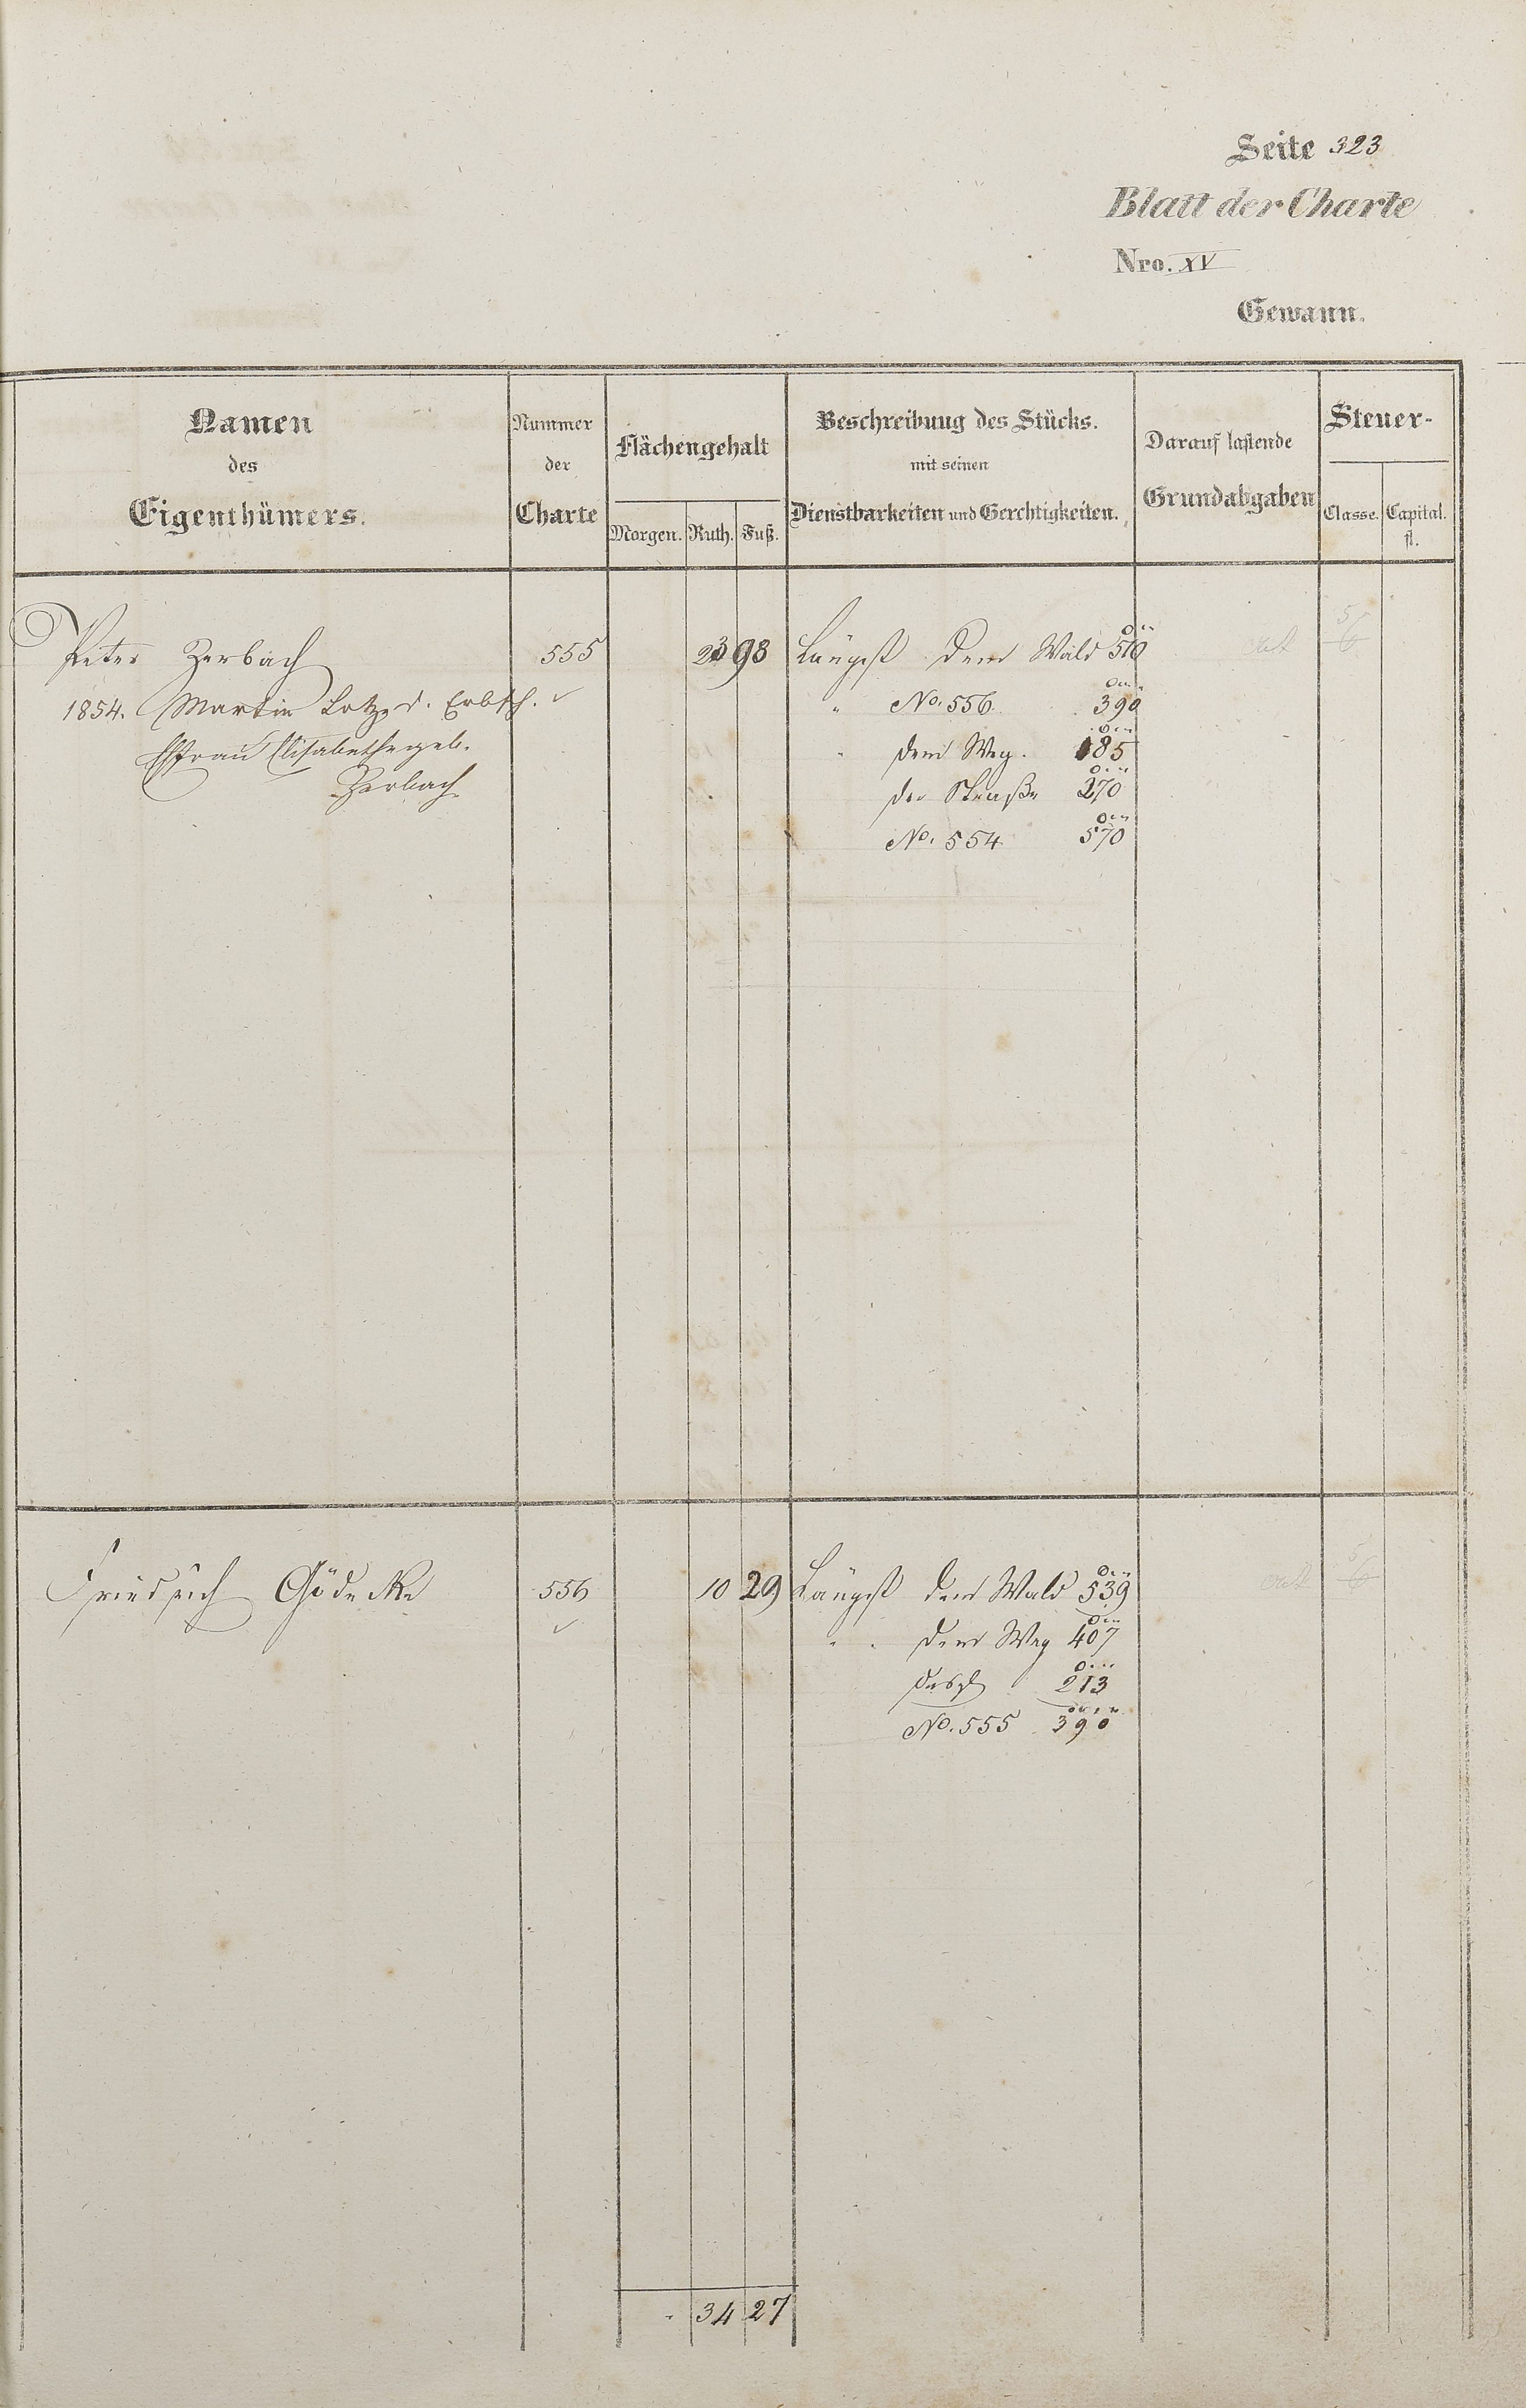 Seite 323
Blatt der Charte
Nro. XV
Gewann.
Namen des Eigenthümers.
Nummer der Charte
Flächengehalt
Morgen. Ruth. Fuß.
Beschreibung des Stücks.
mit seinen
Dienstbarkeiten und Gerechtigkeiten.
Darauf lastende
Grundabgaben
Steuer-
Classe. Capital.
fl.
Peter Zerbach 555 23 98 Längst dem Wald 510
1854. Martin Lotz, d. Erbsch. " No. 556. 390
Ehfrau Elisabethe geb. " dem Weg. 185
Zerbach der Straße 270
No. 554 570
Friedrich Gödecke 556 10 29 Längst dem Wald 539
" " dem Weg 407
desgl 213
No. 555 390
34 27